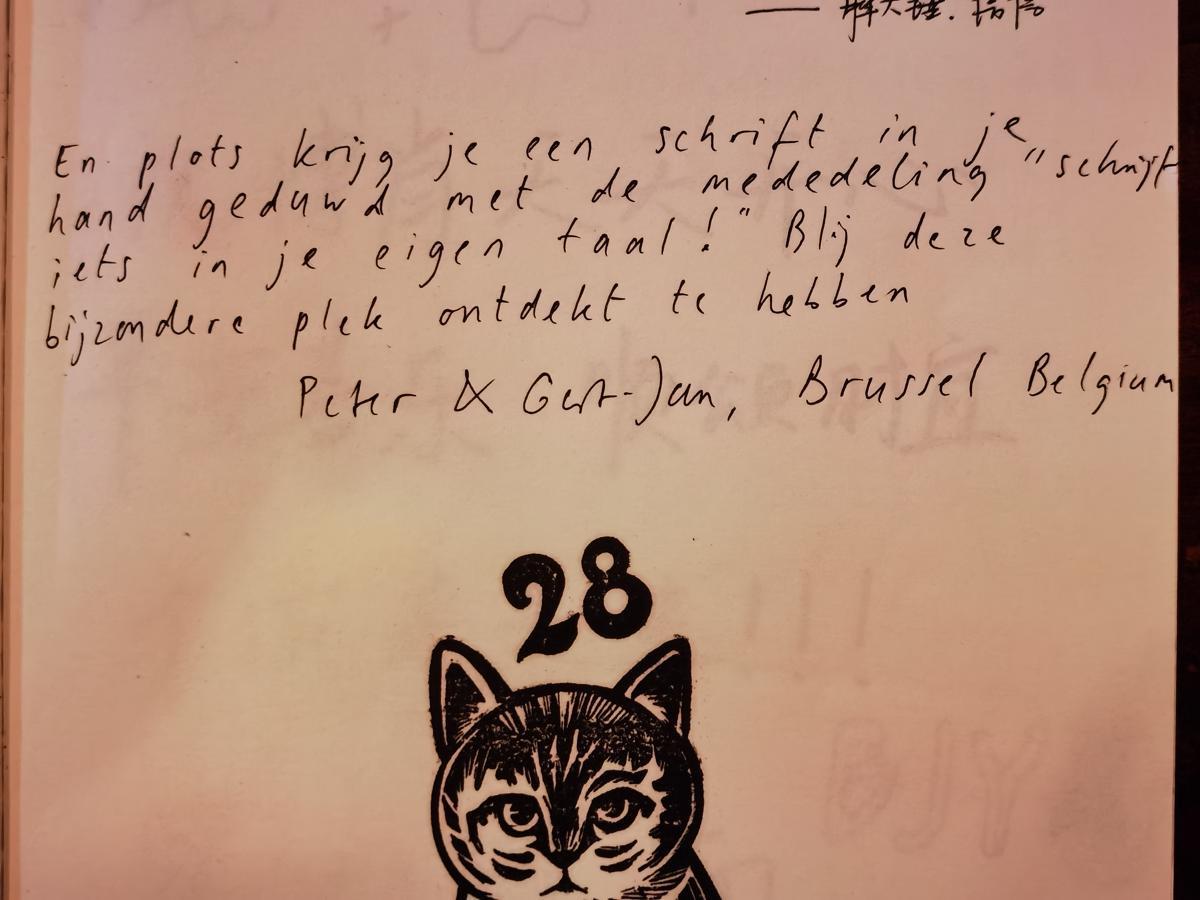 En plots krijg je een schrift in je
hand geduwd met de mededeling "schrijf
iets in je eigen taal!" Blij deze
bijzondere plek ontdekt te hebben
Peter & Gert-Jan, Brussel Belgium
28